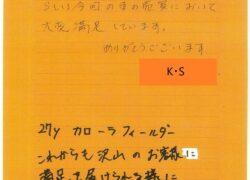 らしい今回の車の販売において
大変満足しています。
ありがとうございます
K・S
27y カローラフィールダー
これからも沢山のお客様に
満足を届けられる様に